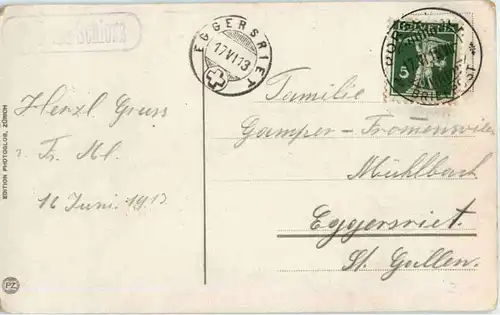 Schloss
EGGERSRIET
17.VI.13
5
BRIEFPOST
EDITION PHOTOGLOB, ZÜRICH
PZ
Herzl. Gruss
Fr. Ml.
16 Juni 1913
Familie
Gamper-Fromenwiler
Mühlbach
Eggersriet.
St. Gallen.